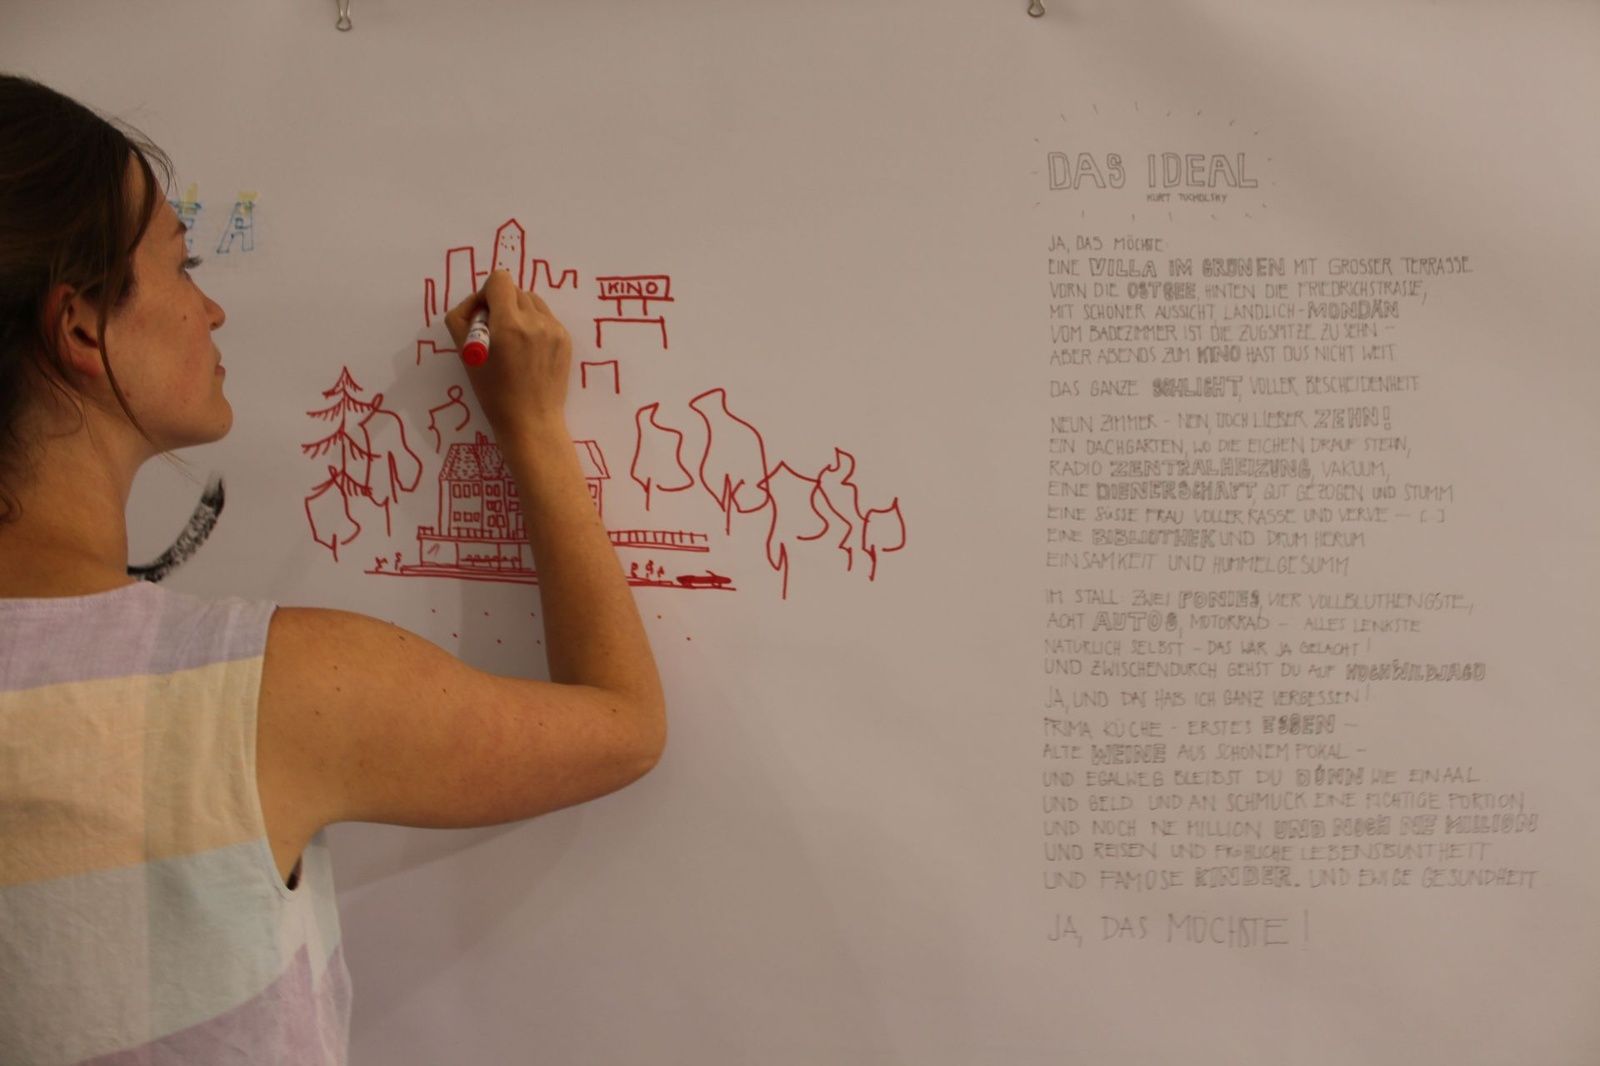 A
KINO
DAS IDEAL
KURT TUCHOLSKY
JA, DAS MÖCHSTE:
EINE VILLA IM GRÜNEN MIT GROSSER TERRASSE
VORN DIE OSTSEE, HINTEN DIE FRIEDRICHSTRASSE,
MIT SCHÖNER AUSSICHT, LÄNDLICH-MONDÄN
VOM BADEZIMMER IST DIE ZUGSPITZE ZU SEHN -
ABER ABENDS ZUM KINO HAST DUS NICHT WEIT.
DAS GANZE SCHLICHT, VOLLER BESCHEIDENHEIT
NEUN ZIMMER - NEIN, DOCH LIEBER ZEHN!
EIN DACHGARTEN, WO DIE EICHEN DRAUF STEHN,
RADIO ZENTRALHEIZUNG, VAKUUM,
EINE DIENERSCHAFT, GUT GEZOGEN UND STUMM
EINE SÜSSE FRAU VOLLER RASSE UND VERVE - (..)
EINE BIBLIOTHEK UND DRUM HERUM
EINSAMKEIT UND HUMMELGESUMM
IM STALL: ZWEI PONIES, VIER VOLLBLUTHENGSTE,
ACHT AUTOS, MOTORRAD - ALLES LENKSTE
NATÜRLICH SELBST - DAS WÄR JA GELACHT!
UND ZWISCHENDURCH GEHST DU AUF HOCHWILDJAGD
JA, UND DAS HAB ICH GANZ VERGESSEN!
PRIMA KÜCHE - ERSTES ESSEN -
ALTE WEINE AUS SCHÖNEM POKAL -
UND EGALWEG BLEIBST DU DÜNN WIE EIN AAL.
UND GELD. UND AN SCHMUCK EINE RICHTIGE PORTION.
UND NOCH NE MILLION UND NOCH NE MILLION
UND REISEN UND FRÖHLICHE LEBENSBUNTHEIT
UND FAMOSE KINDER. UND EWIGE GESUNDHEIT
JA, DAS MÖCHSTE!